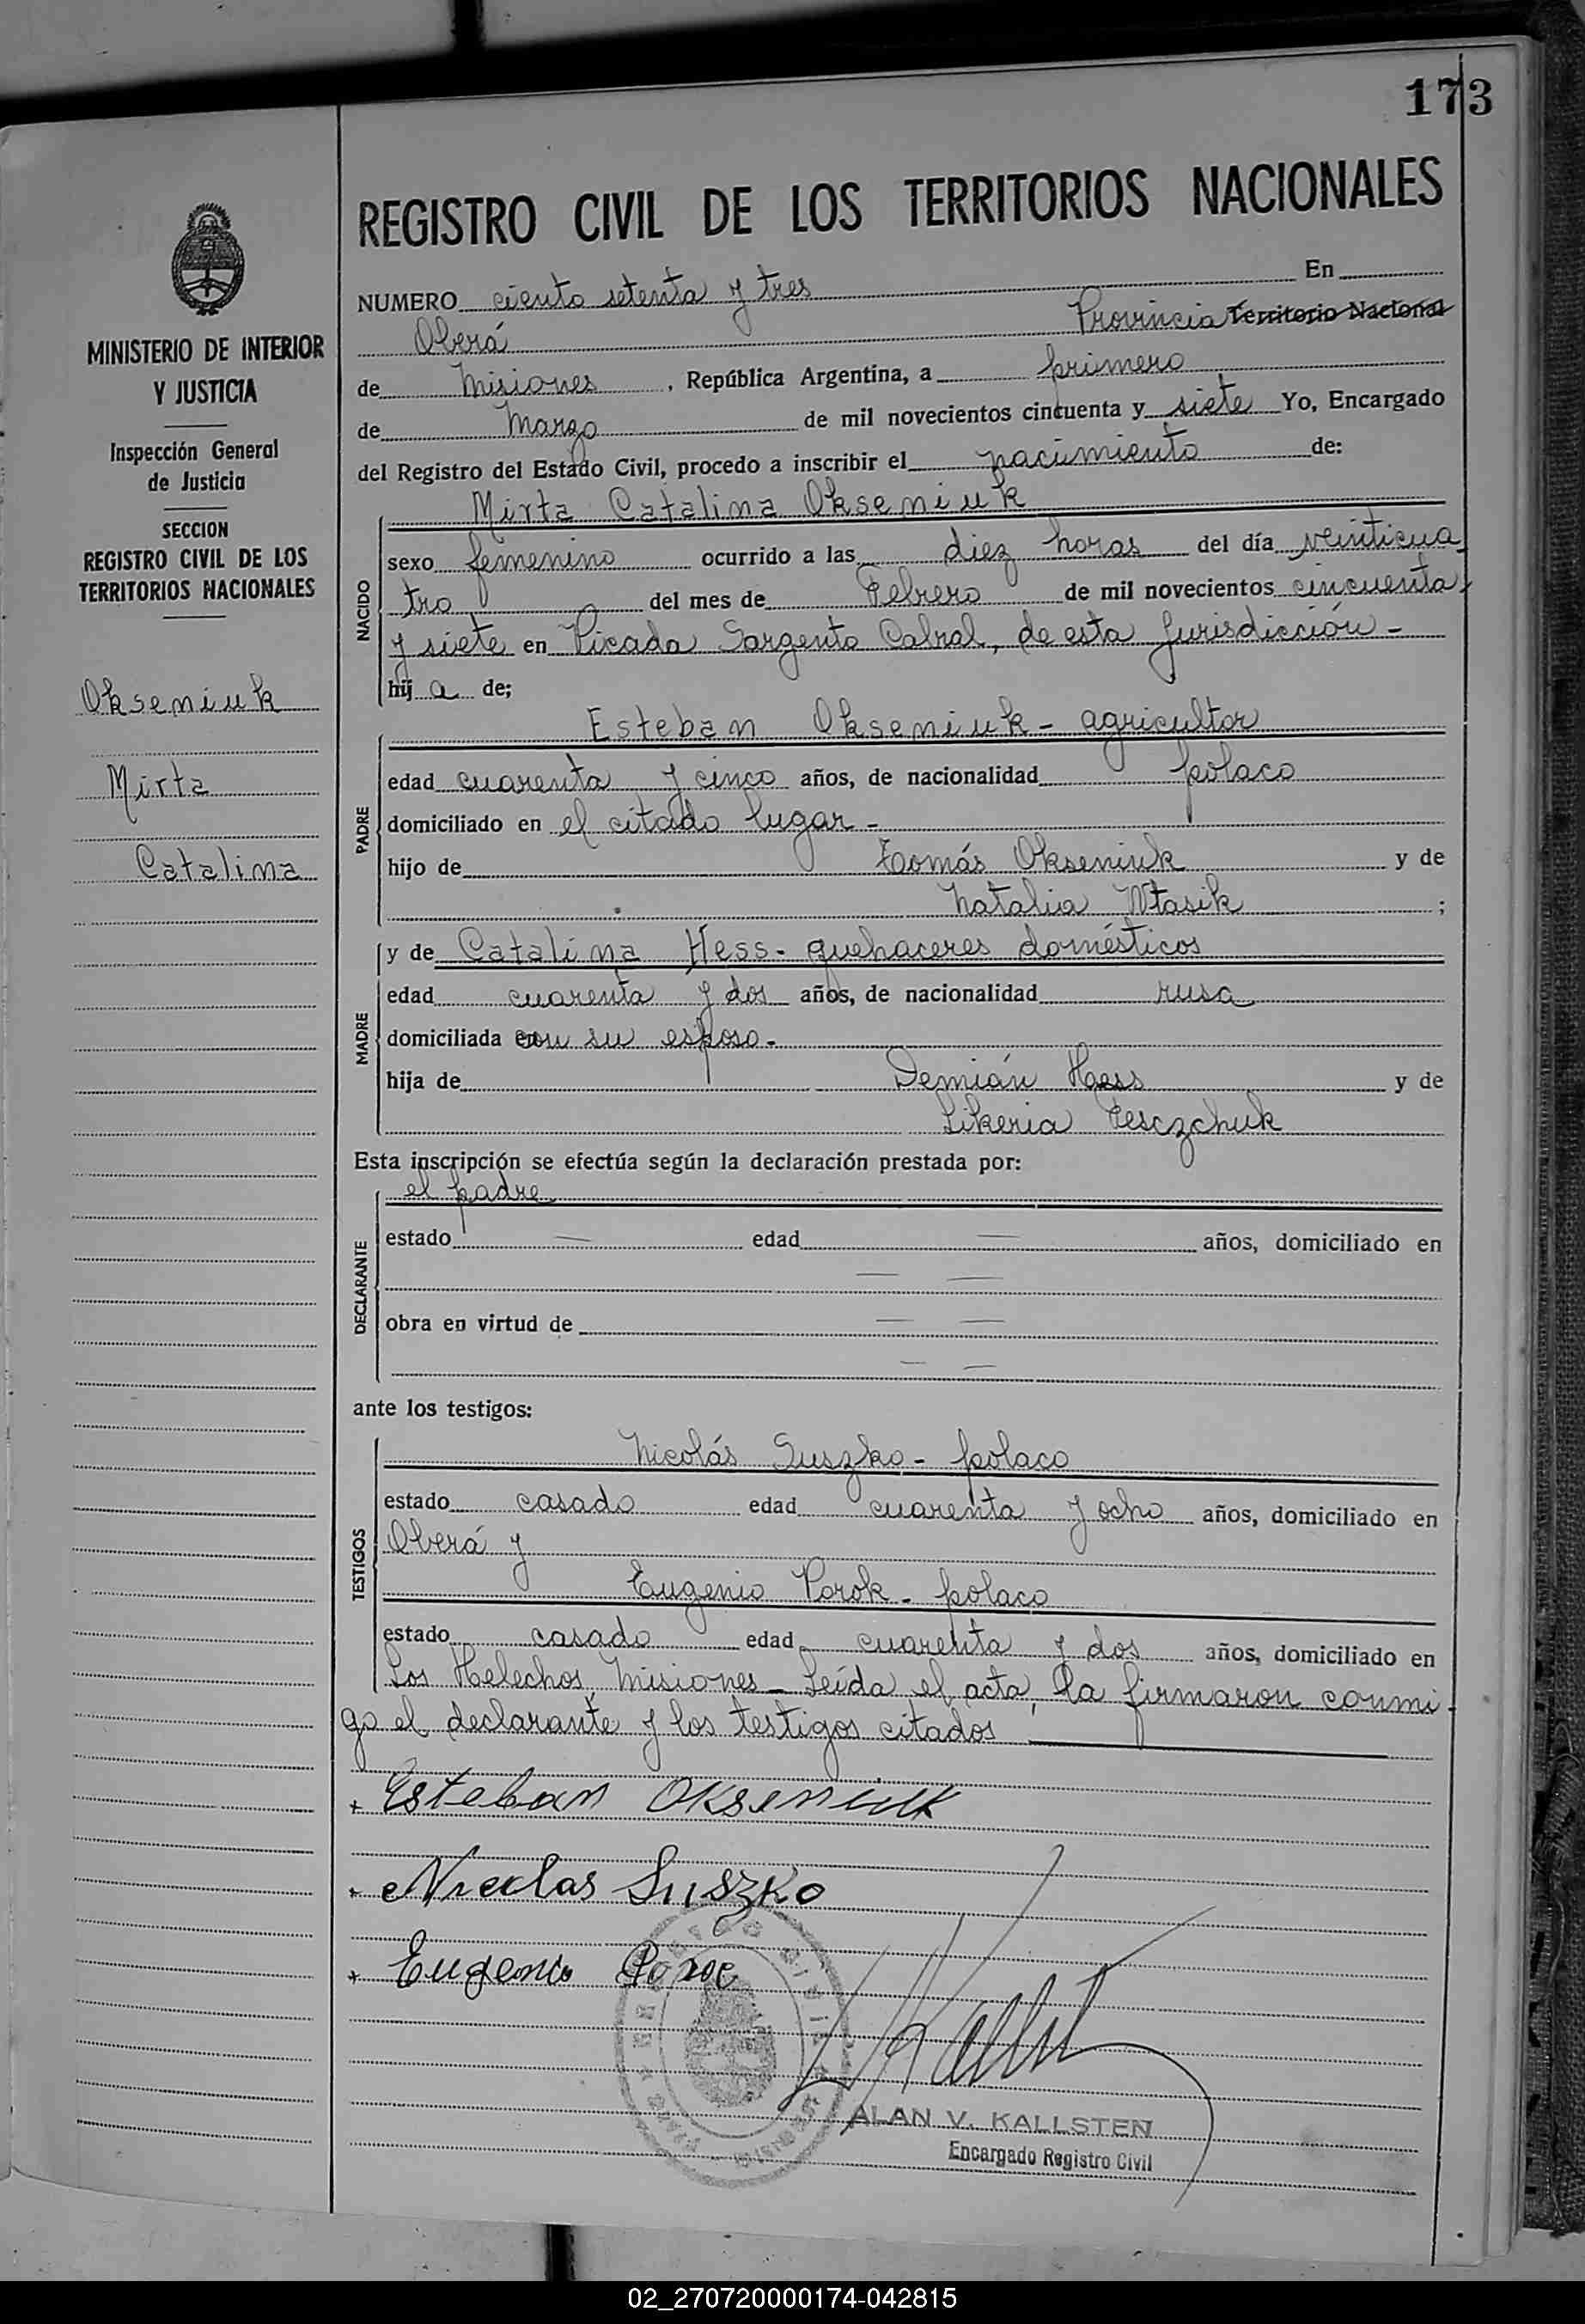 173
REGISTRO CIVIL DE LOS TERRITORIOS NACIONALES
NUMERO ciento setenta y tres En
Oberá Provincia Territorio Nacional
de Misiones, República Argentina, a primero
de Marzo de mil novecientos cincuenta y siete Yo, Encargado
del Registro del Estado Civil, procedo a inscribir el nacimiento de:
MINISTERIO DE INTERIOR
Y JUSTICIA
Inspección General
de Justicia
SECCION
REGISTRO CIVIL DE LOS
TERRITORIOS NACIONALES
Okseniuk
Mirta
Catalina
NACIDO
Mirta Catalina Okseniuk
sexo femenino ocurrido a las diez horas del día veinticua
tro del mes de Febrero de mil novecientos cincuenta
y siete en Picada Sargento Cabral, de esta Jurisdicción -
hij a de;
PADRE
Esteban Okseniuk - agricultor
edad cuarenta y cinco años, de nacionalidad polaco
domiciliado en el citado lugar -
hijo de Tomás Okseniuk y de
Natalia Wtasik ;
MADRE
y de Catalina Hess - quehaceres domésticos
edad cuarenta y dos años, de nacionalidad rusa
domiciliada con su esposo -
hija de Demián Hess y de
Likeria Pesczchuk
Esta inscripción se efectúa según la declaración prestada por:
DECLARANTE
el padre
estado — edad — años, domiciliado en
— —
obra en virtud de — —
— —
ante los testigos:
TESTIGOS
Nicolás Suszko - polaco
estado casado edad cuarenta y ocho años, domiciliado en
Oberá y
Eugenio Porok - polaco
estado casado edad cuarenta y dos años, domiciliado en
Los Helechos, Misiones - Leída el acta, la firmaron conmi
go el declarante y los testigos citados
+ Esteban Okseniuk
+ Nicolas Suszko
+ Eugenio
ALAN V. KALLSTEN
Encargado Registro Civil
02_270720000174-042815